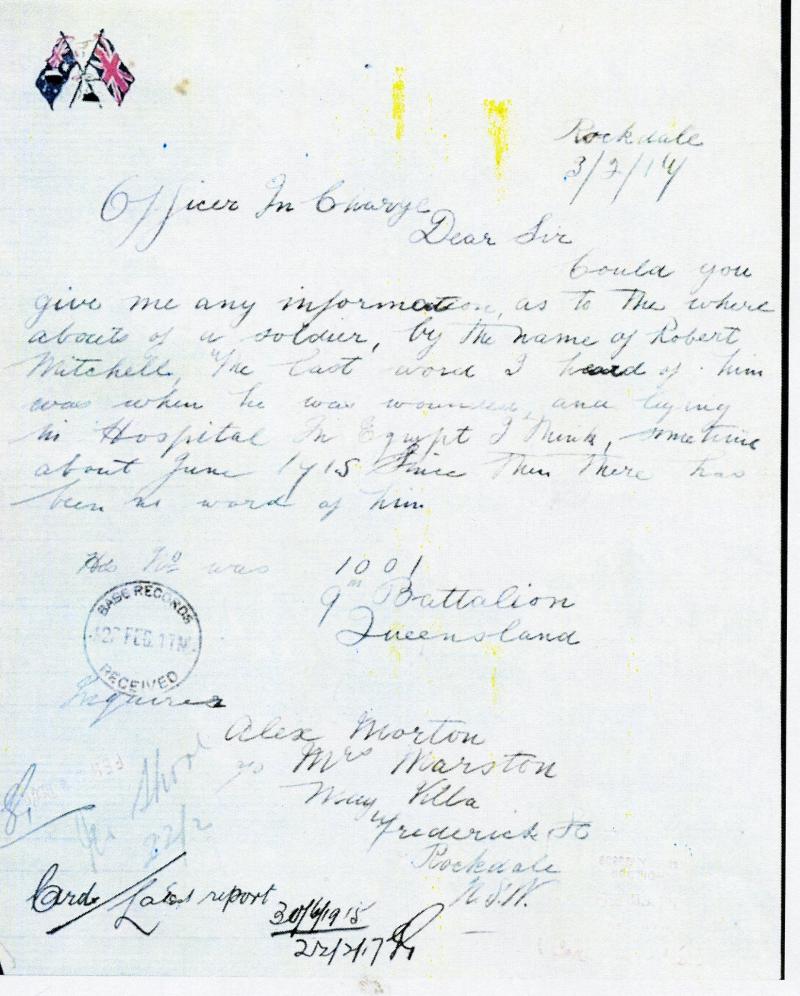 Rockdale
3/2/17
Officer In Charge
Dear Sir
Could you
give me any information, as to the where
abouts of a soldier, by the name of Robert
Mitchell, The last word I heard of him
was when he was wounded, and lying
in Hospital In Egypt I think, sometime
about June 1915 Since then there has
been no word of him
His No was 1001
9th Battalion
Queensland
BASE RECORDS
FEB. 17
RECEIVED
Inquirer
Alex Morton
c/o Mrs Marston
May Villa
Frederick St
Rockdale
N.S.W.
22/2
Card Latest report
30/6/1915
22/2/17